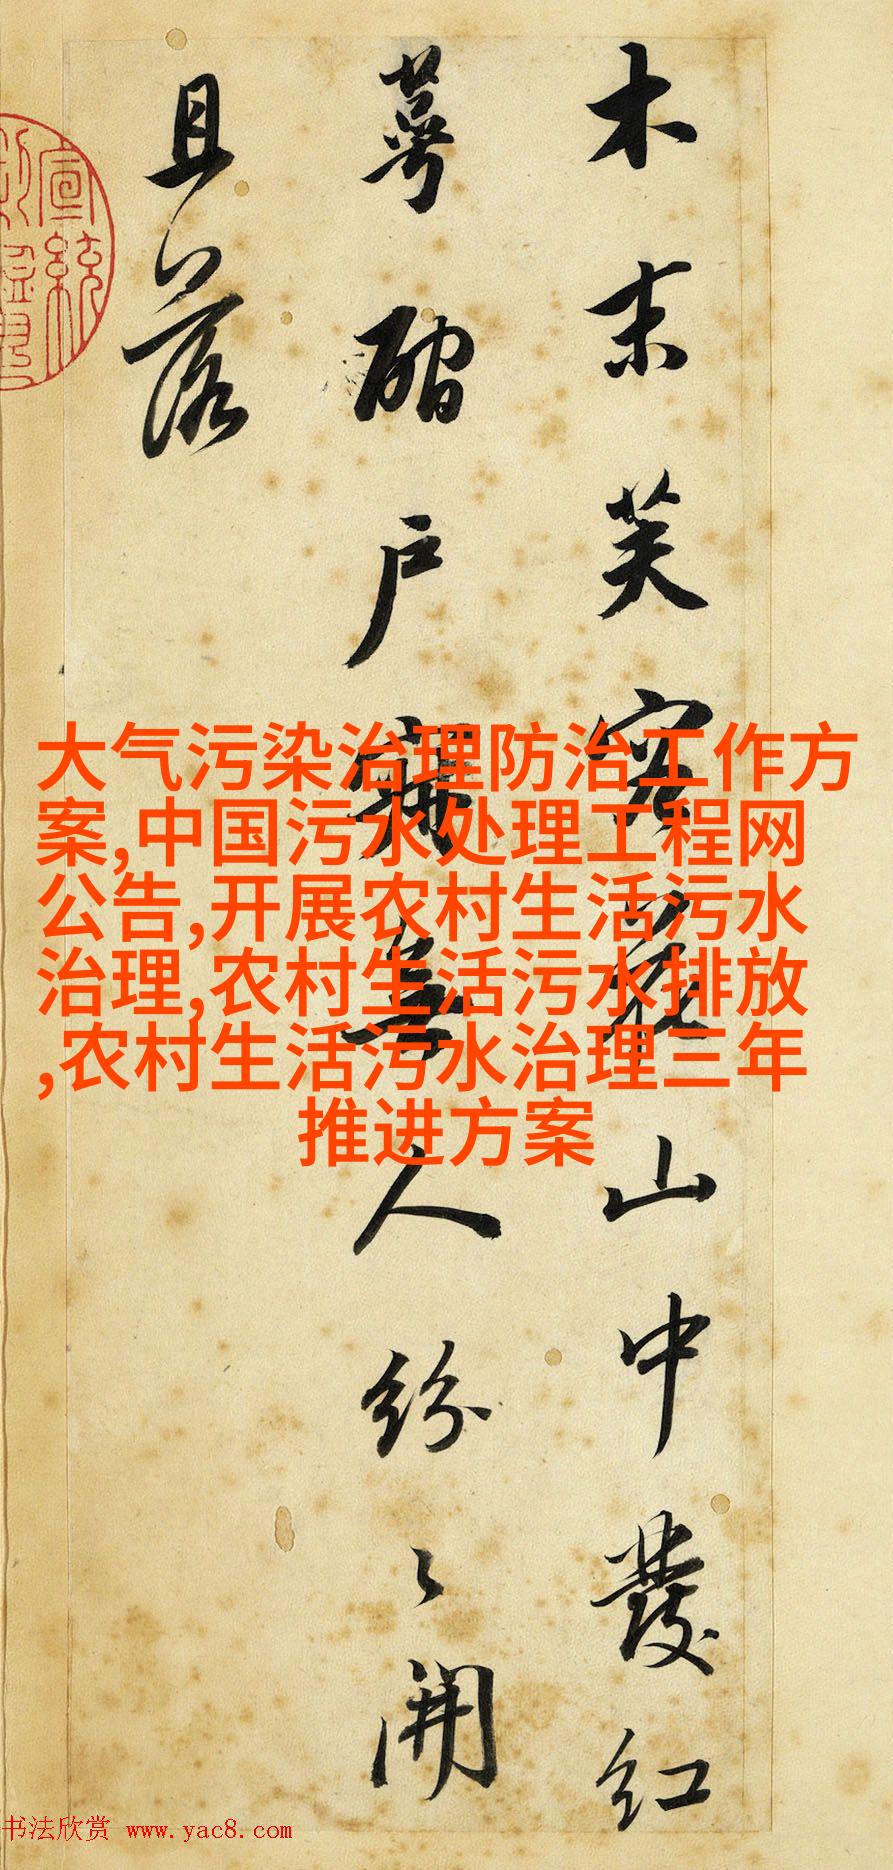 木末芙蓉花山中發紅
萼磵戶寂無人紛〻開
且落
宣統
大气污染治理防治工作方
案,中国污水处理工程网
公告,开展农村生活污水
治理,农村生活污水排放
,农村生活污水治理三年
推进方案
书法欣赏 www.yac8.com